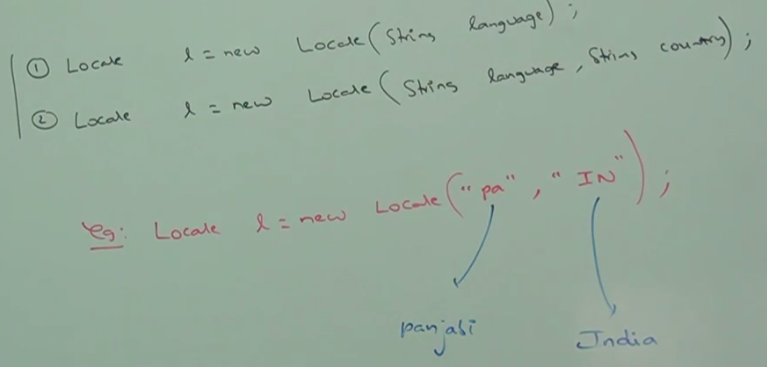 ① Locale l = new Locale(String language);
② Locale l = new Locale(String language, String country);
eg: Locale l = new Locale("pa", "IN");
panjabi India